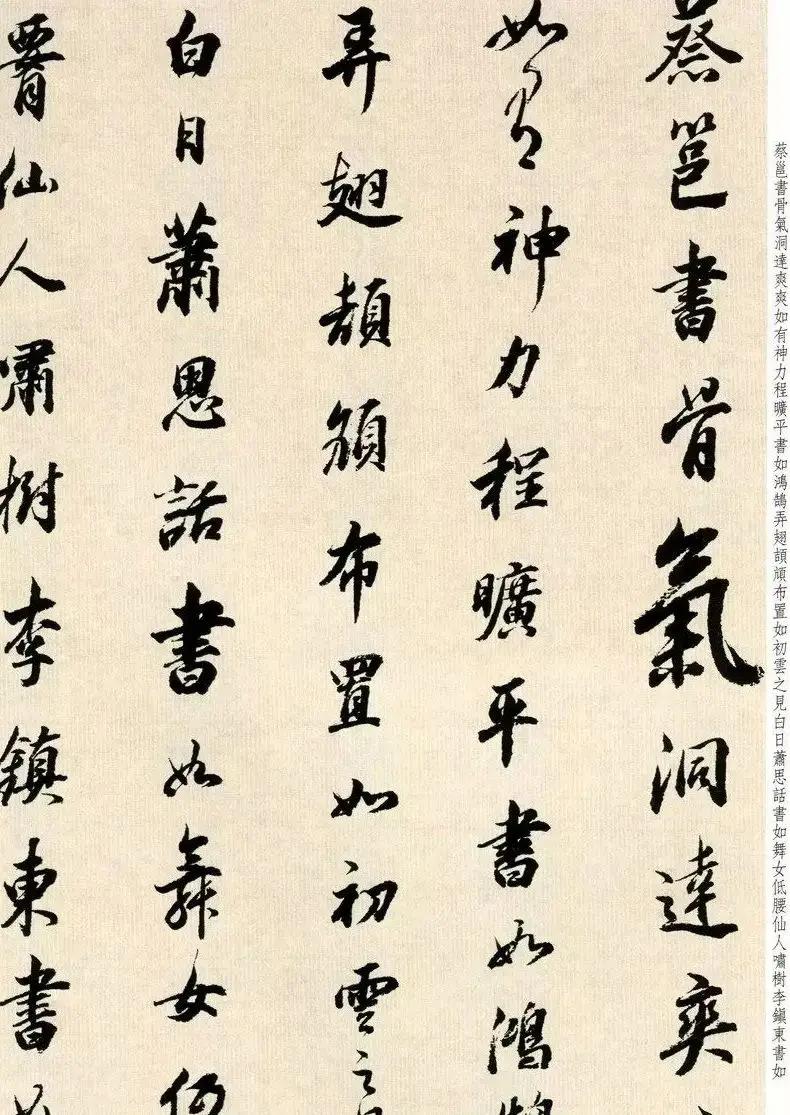 蔡邕書骨氣洞達爽爽如有神力程曠平書如鴻鵠弄翅頡頏布置如初雲之見白日蕭思話書如舞女低腰仙人嘯樹李鎮東書如
蔡邕書骨氣洞達爽
如有神力程曠平書如鴻鵠
弄翅頡頏布置如初雲之見
白日蕭思話書如舞女低
腰仙人嘯樹李鎮東書